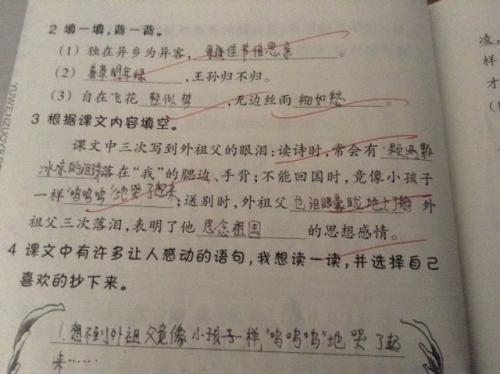 2 填一填,背一背。
(1) 独在异乡为异客, 每逢佳节倍思亲 。
(2) 春草明年绿 ,王孙归不归。
(3) 自在飞花 轻似梦 ,无边丝雨 细如愁 。
3 根据课文内容填空。
课文中三次写到外祖父的眼泪:读诗时,常会有 一颗两颗
冰凉的泪珠落在“我”的腮边、手背;不能回国时,竟像小孩子
一样“呜呜呜”地哭了起来;送别时,外祖父 也泪眼蒙眬地 外
祖父三次落泪,表明了他 思念祖国 的思想感情。
4 课文中有许多让人感动的语句,我想读一读,并选择自己
喜欢的抄下来。
1.想不到外祖父竟像小孩子一样,“呜呜呜”地哭了起
来……
凌,
样
才